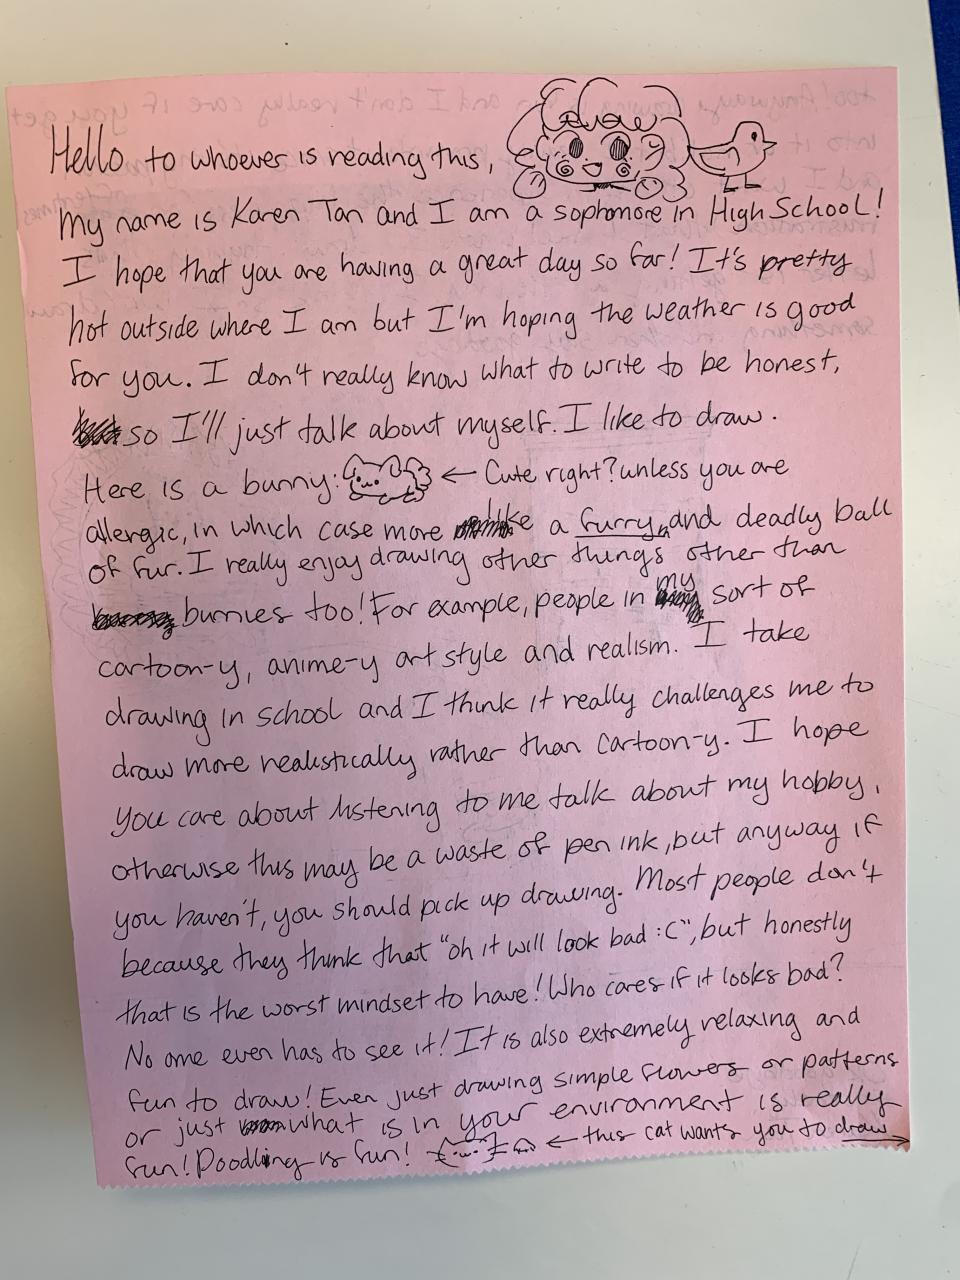 Hello to whoever is reading this,
My name is Karen Tan and I am a sophomore in High School!
I hope that you are having a great day so far! It's pretty
hot outside where I am but I'm hoping the weather is good
for you. I don't really know what to write to be honest,
so I'll just talk about myself. I like to draw.
Here is a bunny: ← Cute right? unless you are
allergic, in which case more like a furry and deadly ball
of fur. I really enjoy drawing other things other than
bunnies too! For example, people in my sort of
cartoon-y, anime-y art style and realism. I take
drawing in school and I think it really challenges me to
draw more realistically rather than cartoon-y. I hope
you care about listening to me talk about my hobby,
otherwise this may be a waste of pen ink, but anyway if
you haven't, you should pick up drawing. Most people don't
because they think that "oh it will look bad :C", but honestly
that is the worst mindset to have! Who cares if it looks bad?
No one even has to see it! It is also extremely relaxing and
fun to draw! Even just drawing simple flowers or patterns
or just what is in your environment is really
fun! Doodling is fun! ← this cat wants you to draw